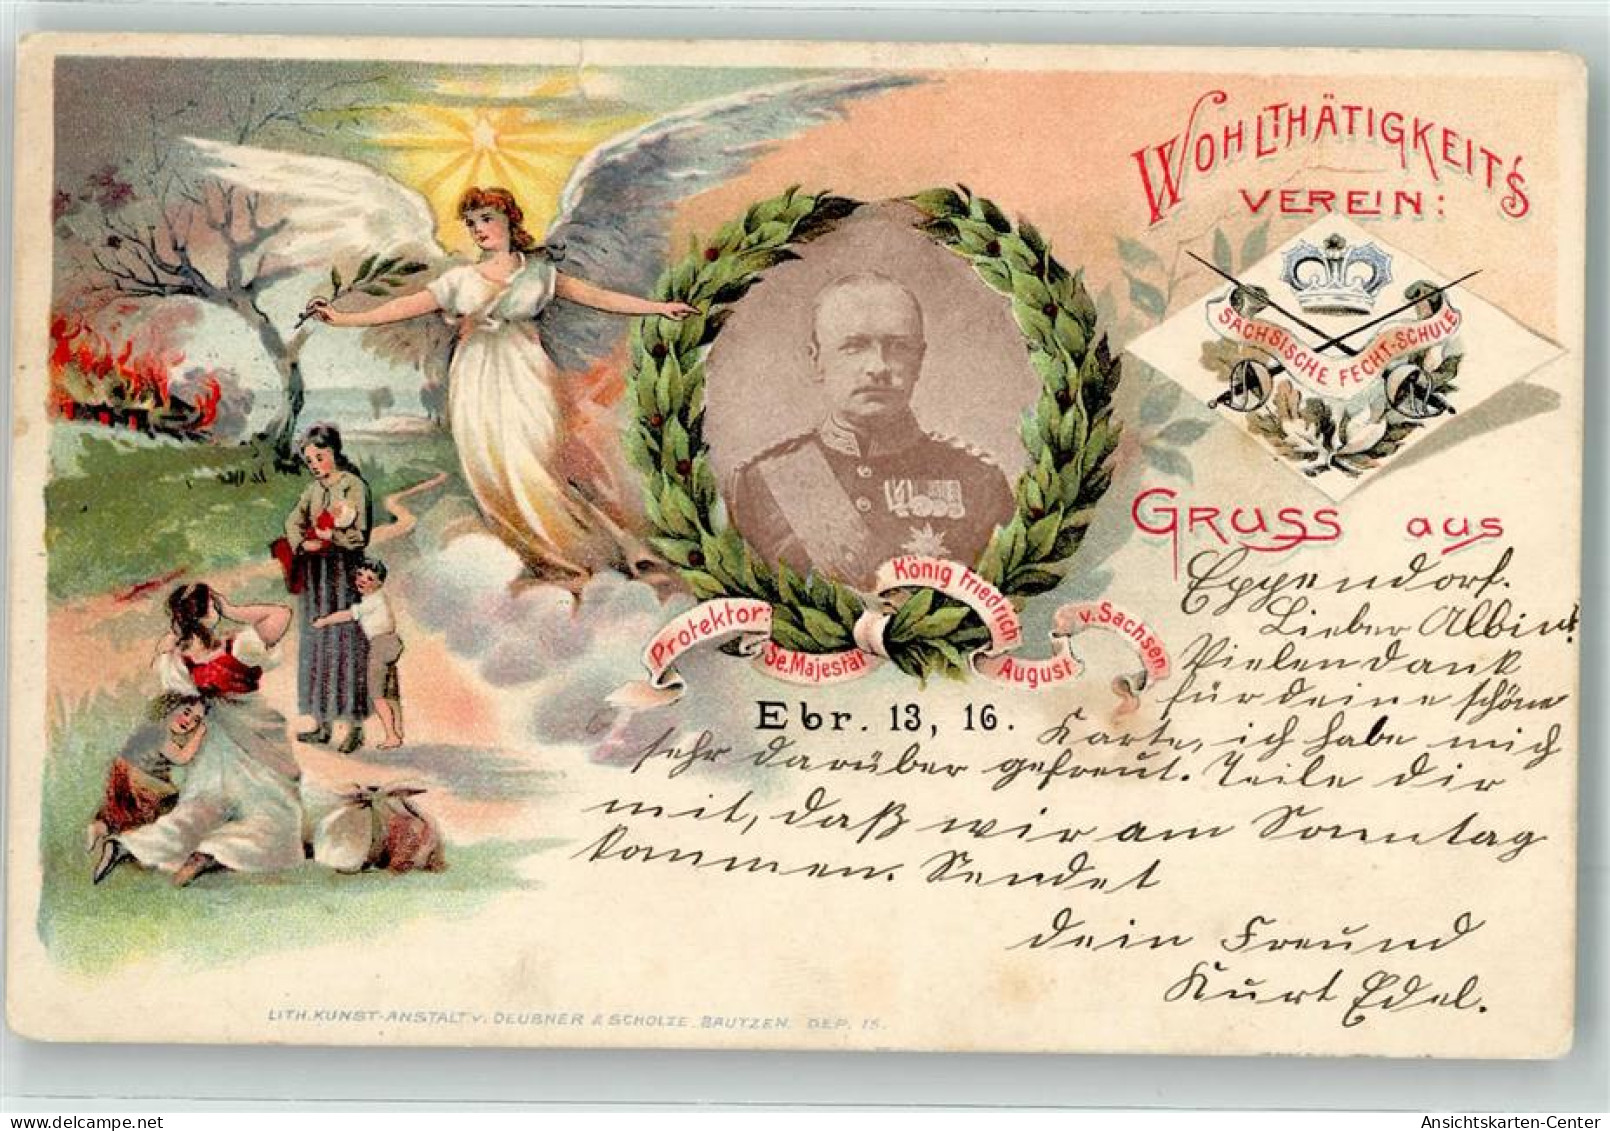 WOHLTHÄTIGKEIT'S
VEREIN:
SÄCHSISCHE FECHT-SCHULE
GRUSS aus
Eppendorf.
Lieber Albin!
Vielen dank
für deine schöne
Protektor:
Se. Majestät
König Friedrich
August
v. Sachsen
Ebr. 13, 16.
Karte, ich habe mich
sehr darüber gefreut. Teile dir
mit, daß wir am Sonntag
kommen. Sendet
dein Freund
Kurt Edel.
LITH. KUNST-ANSTALT V. DEUBNER & SCHOLZE, BAUTZEN. DEP. 15.
delcampe.net
Ansichtskarten-Center